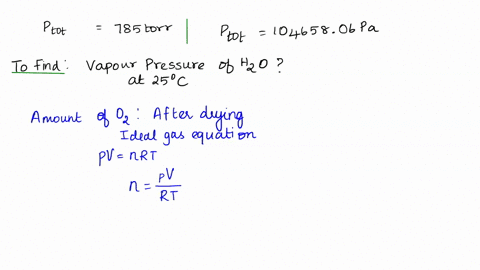 Ptot = 785 torr | Ptot = 104658.06 Pa
To find: Vapour Pressure of H2O ?
at 25°C
Amount of O2: After drying
Ideal gas equation
PV = nRT
n = PV
RT